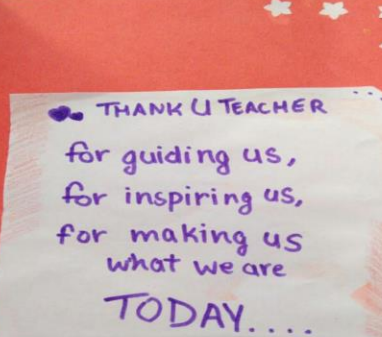 THANK U TEACHER
for guiding us,
for inspiring us,
for making us
what we are
TODAY....